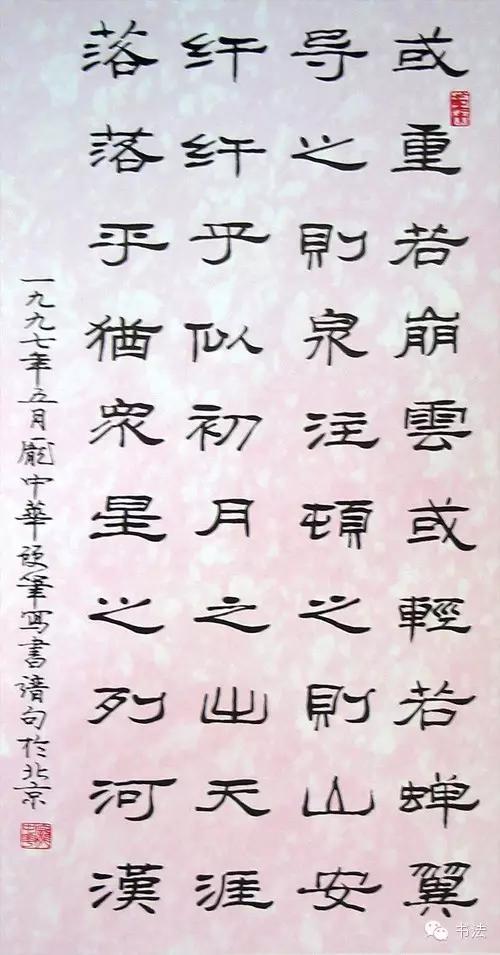 或重若崩雲或輕若蝉翼
导之則泉注頓之則山安
纤纤乎似初月之出天涯
落落乎猶衆星之列河漢
一九九七年五月龐中華硬筆寫書譜句於北京
书法